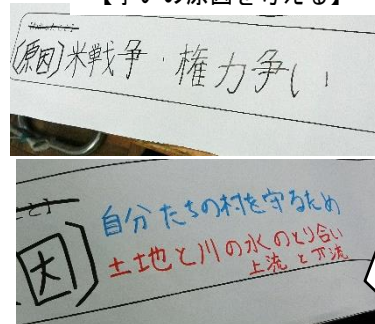 【争いの原因を考える】
(原因)米戦争・権力争い
因)
自分たちの村を守るため
土地と川の水のとり合い
上流と下流